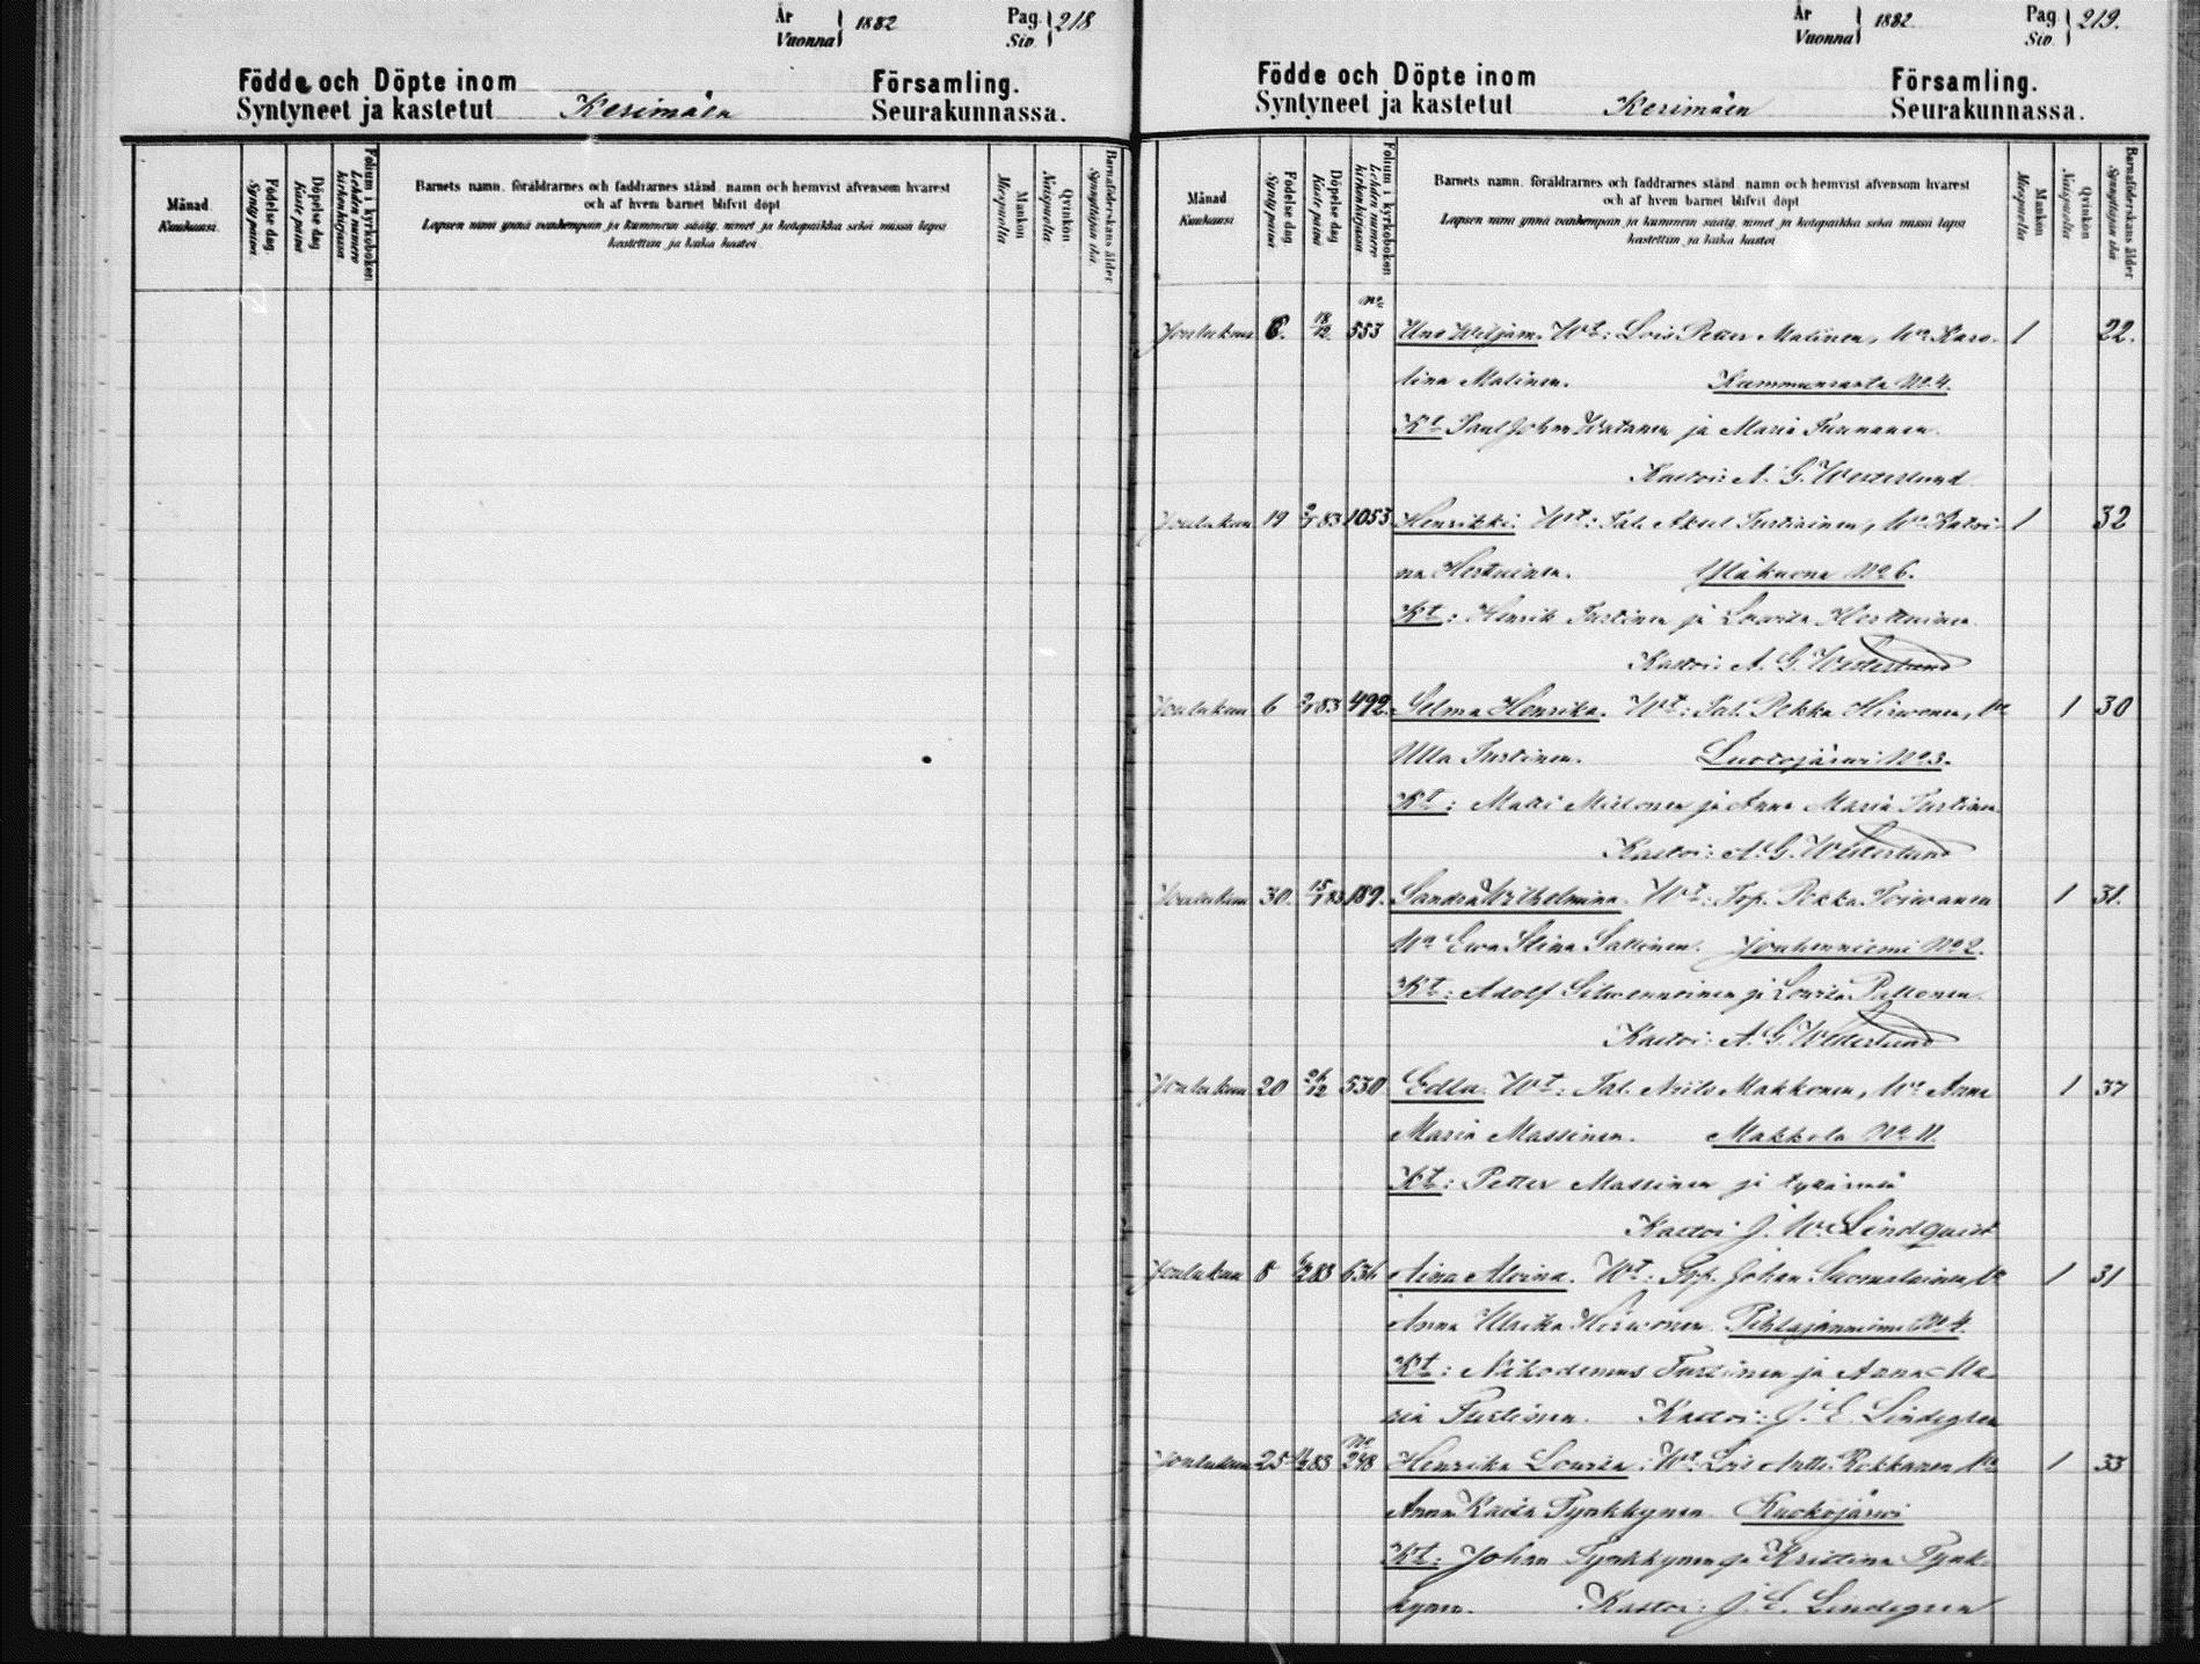 År
Vuonna } 1882 Pag.
Siv. } 218
Födde och Döpte inom Församling.
Syntyneet ja kastetut Kerimäen Seurakunnassa.
Månad
Kuukausi
Födelse dag
Synty päivä
Döpelse dag
Kaste päivä
Folium i kyrkoboken
Lehden numero kirkonkirjassa
Barnets namn, föräldrarnes och faddrarnes stånd, namn och hemvist äfvensom hvarest
och af hvem barnet blifvit döpt
Lapsen nimi ynnä vanhempain ja kummein sääty, nimet ja kotopaikka sekä missä lapsi
kastettiin ja kuka kastoi
Mankön
Miespuolta
Qvinkön
Naispuolta
Barnaföderskans ålder
Synnyttäjän ikä
År
Vuonna } 1882 Pag
Siv } 219.
Födde och Döpte inom Församling.
Syntyneet ja kastetut Kerimäen Seurakunnassa.
Månad
Kuukausi
Födelse dag
Synty päivä
Döpelse dag
Kaste päivä
Folium i kyrkoboken
Lehden numero kirkonkirjassa
Barnets namn, föräldrarnes och faddrarnes stånd, namn och hemvist äfvensom hvarest
och af hvem barnet blifvit döpt
Lapsen nimi ynnä vanhempain ja kummein sääty, nimet ja kotopaikka sekä missä lapsi
kastettiin ja kuka kastoi
Mankön
Miespuolta
Qvinkön
Naispuolta
Barnaföderskans ålder
Synnyttäjän ikä
Joulukuu 8. 18/12 No 553 Uno Wiljam. Wt: Lois Petter Malinen, Wo Karo- 1 22.
lina Malinen. Kummunranta No 4.
Kt Paul Johan Ikatanen ja Maria Turunanen.
Kastoi: A. G. Westerlund
Joulukuu 19 2/1 83 1053 Henrikki. Wt: Tal. Aksel Turtiainen, Wo Katri- 1 32
na Herttuinen. Yläkuona No 6.
Kt: Henrik Turtinen ja Lovisa Herttuinen
Kastoi: A. G. Westerlund
Joulukuu 6 2/1 83 492. Selma Henrika. Wt: Tal. Pekka Hirwonen, Wo 1 30
Ulla Turtinen. Luotojärwi No 3.
Kt: Matti Mielonen ja Anna Maria Turtinen
Kastoi: A. G. Westerlund
Joulukuu 30. 15/1 83 189. Sandra Wilhelmina. Wt: Tsp. Pekka Toiwanen 1 31.
Wo Ewa Stina Sallinen. Jouhenniemi No 2.
Kt: Adolf Silwennoinen ja Lovisa Pallonen.
Kastoi: A. G. Westerlund
Joulukuu 20 26/12 530 Edla. Wt: Tal. Niilo Makkonen, Wo Anna 1 37
Maria Massinen. Makkola No 11.
Kt: Petter Massinen ja tyttärensä
Kastoi J. W. Lindquist
Joulukuu 8 2 83 636 Aina Alvina. Wt: Tsp. Johan Suomalainen, Wo 1 31
Anna Ulrika Hirwonen. Pihlajanniemi No 4.
Kt: Nikodemus Turtinen ja Anna Ma-
ria Turtinen. Kastoi: J. E. Lindegren
Joulukuu 25 2 83 No 248 Henrika Lovisa. Wt: Lois Antti Rokkanen Wo 1 33
Anna Kaisa Tynkkynen. Ruokojärwi
Kt: Johan Tynkkynen ja Kristina Tynk-
kynen. Kastoi: J. E. Lindegren